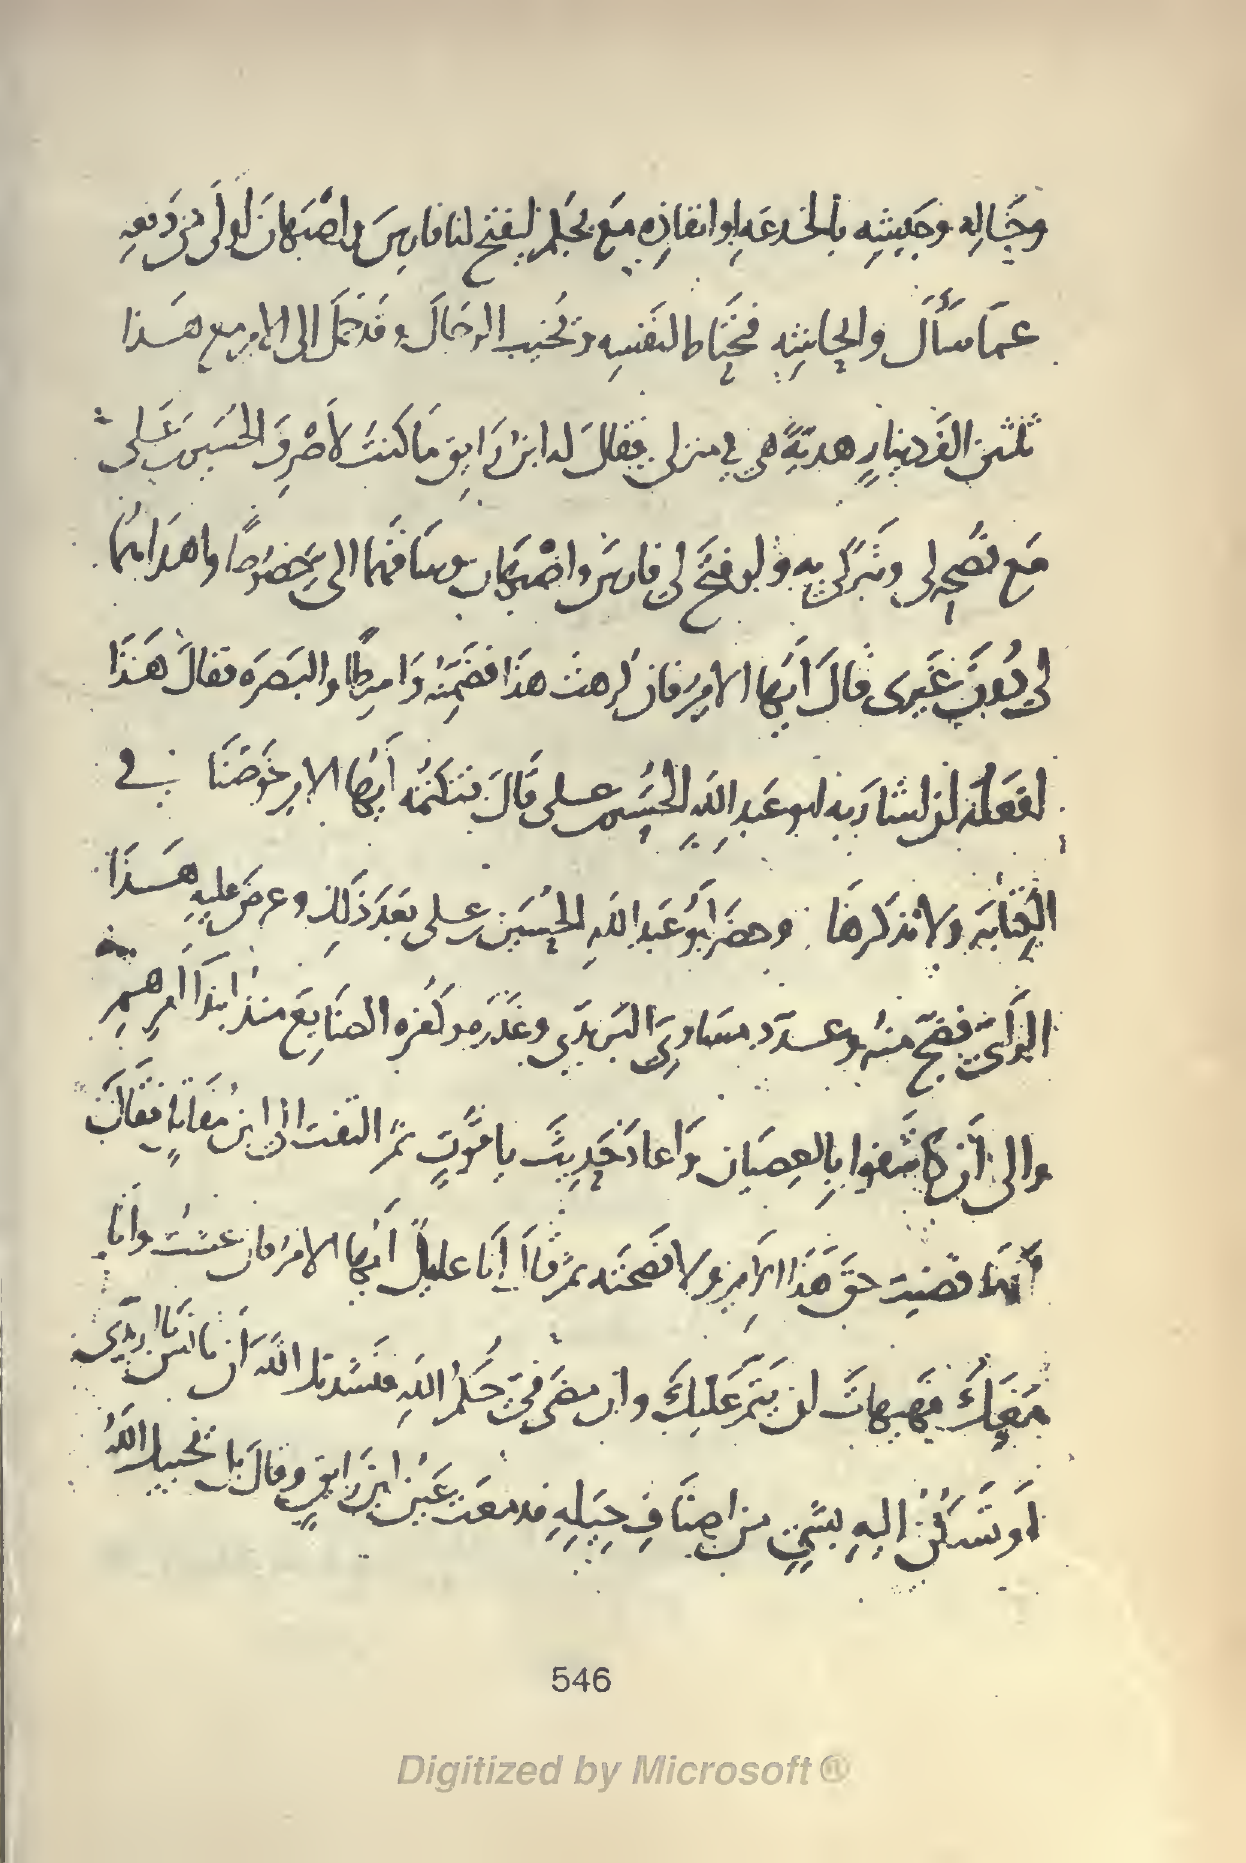 وحاله وحيشه بالخدعه او انفاذه مع بجكم ليفتح لنا فارس واصبهان اولى من دفعه
عما سأل والجانبه فيحتاط لنفسه وتخبب الرجال وقد حمل الى الامير مع هذا
ثلثين الف دينار هدية هي في منزلي فقال له ابن رايق ما كنت لاصرف الحسين بن على
مع نصحه لى وتبركى به ولو فتح لي فارس واصبهان وساقهما الى خصوصا واهداهما
لى دون غيرى قال ايها الامير فان كرهت هذا فضمنه واسطا والبصره فقال هذا
افعله ان اشار به ابو عبد الله الحسين بن على قال فتكتمه ايها الامير خوضنا في
الكتابه ولا تذكرها وحضر ابو عبد الله الحسين بن على بعد ذلك وعرض عليه هذا
الراى فضج منه وعدد مساوى البريدى وغدره وكفره الصنايع منذ ابتدا امرهم
والى ان كاشفوا بالعصيان واعاد حديث ياقوت ثم التفت الى ابن مقاتل فقال
ما قضيت حق هذا الامير ولا نصحته ثم قال انا عليل ايها الامير فان عشت وانا
معك فهيهات ان يتم عليك وان مضى في حكم الله فنشدتك الله ان تانس بالبريدى
او تسكن اليه بشئ من اصناف حيله فدمعت عين ابن رايق وقال بل يحييك الله
546
Digitized by Microsoft ®